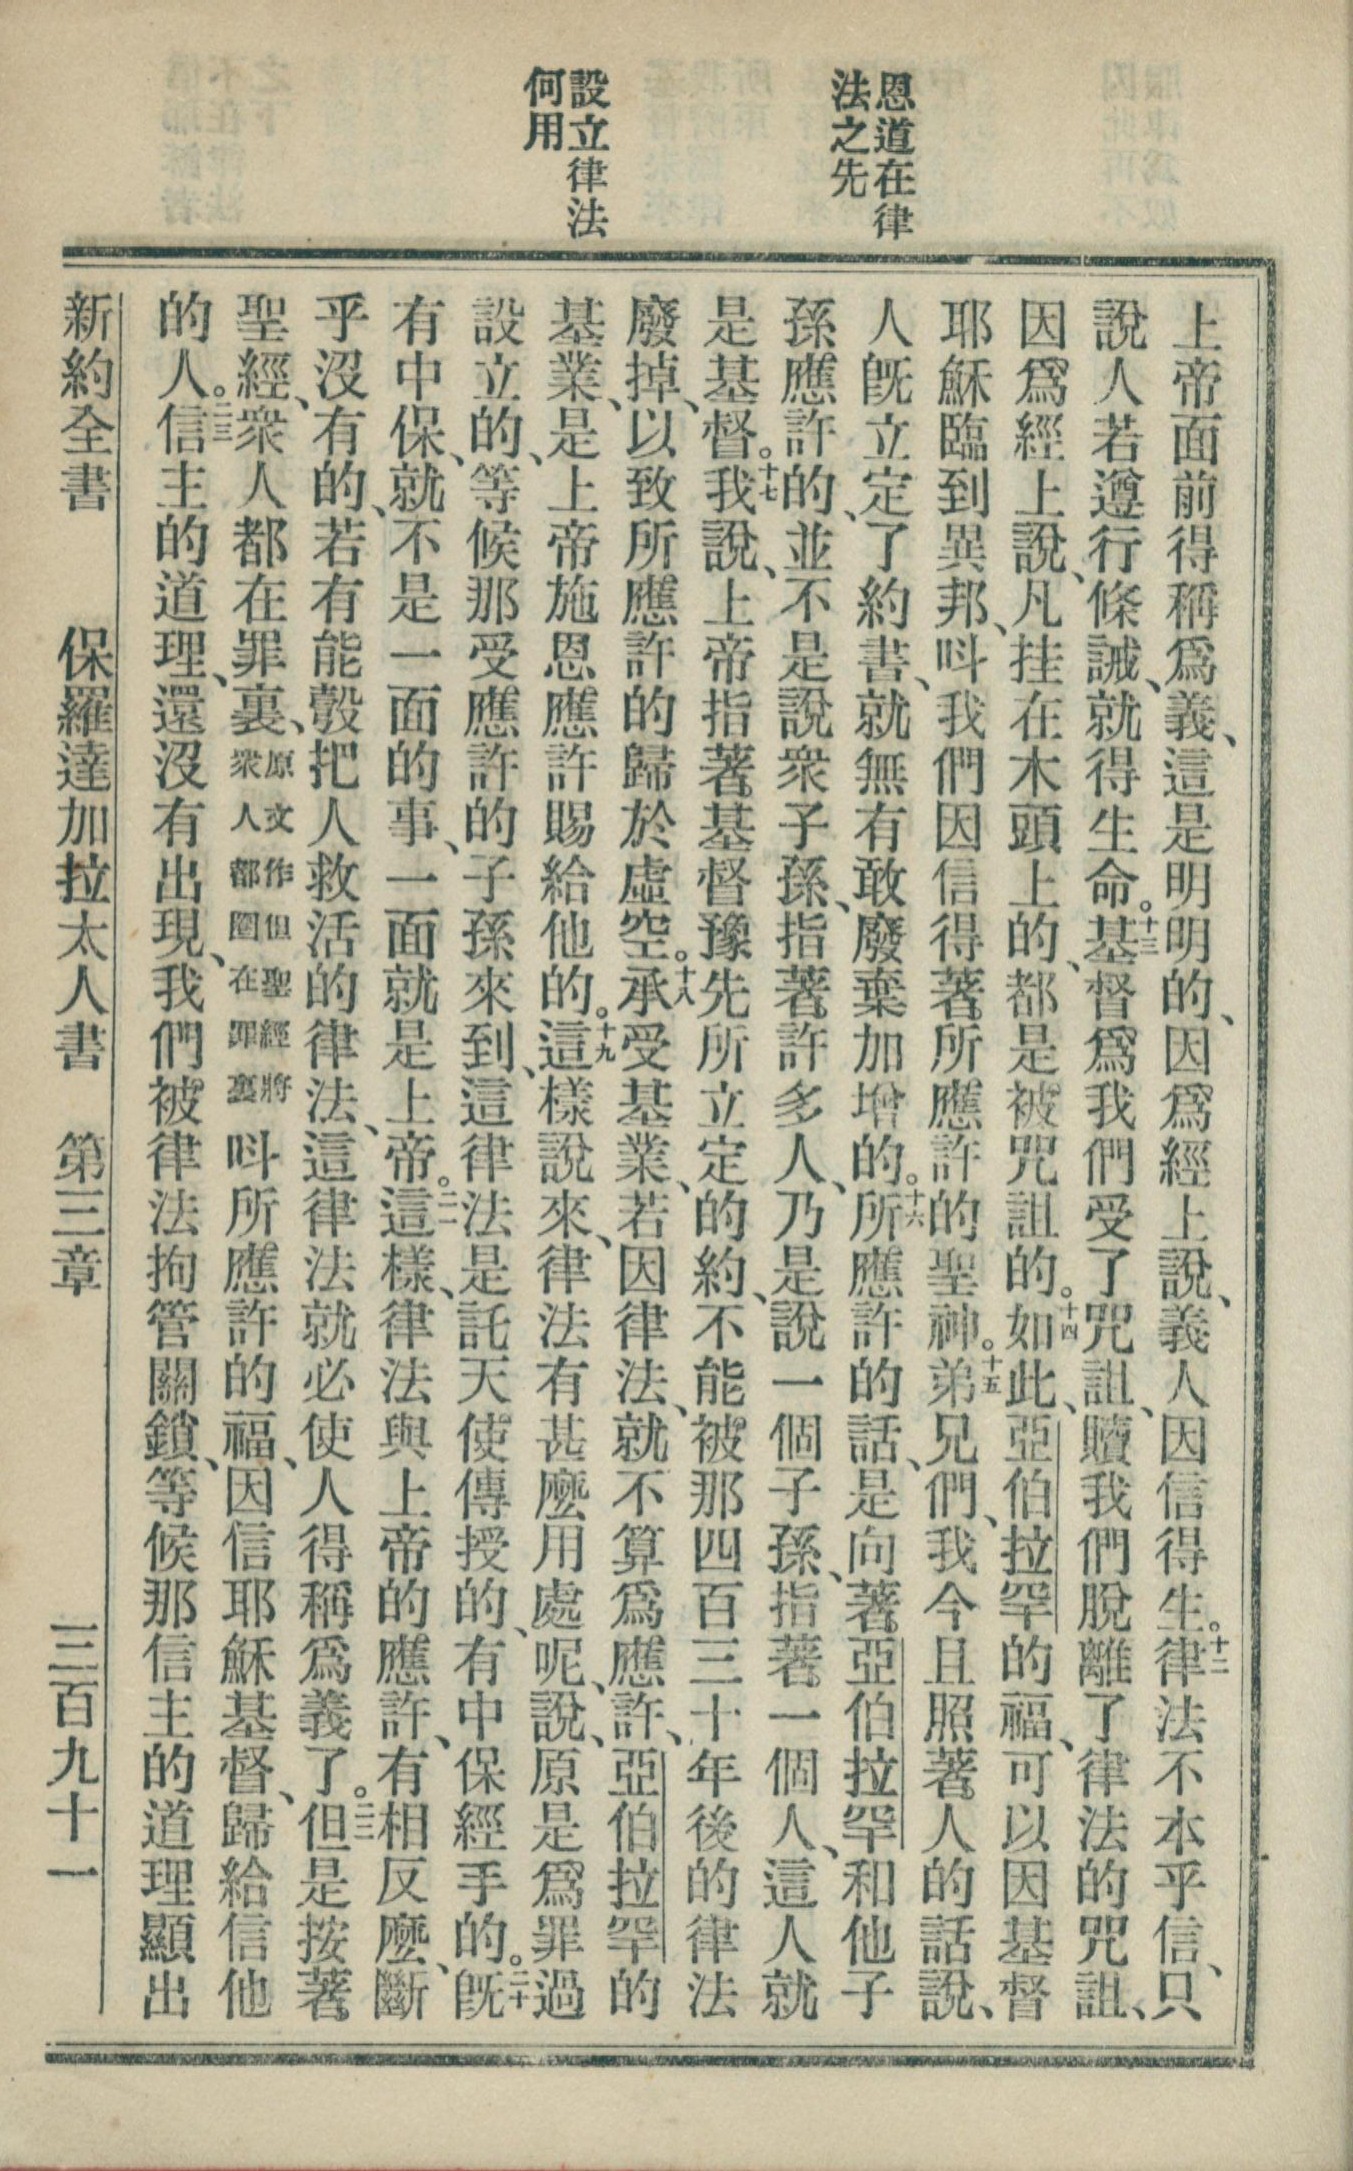 恩道在律
法之先
設立律法
何用
上帝面前得稱爲義、這是明明的、因爲經上說、義人因信得生。十二律法不本乎信、只
說人若遵行條誡、就得生命。十三基督爲我們受了咒詛、贖我們脫離了律法的咒詛、
因爲經上說、凡挂在木頭上的、都是被咒詛的。十四如此、亞伯拉罕的福、可以因基督
耶穌臨到異邦、呌我們因信得著所應許的聖神。十五弟兄們、我今且照著人的話說、
人旣立定了約書、就無有敢廢棄加增的。十六所應許的話、是向著亞伯拉罕和他子
孫應許的、並不是說衆子孫、指著許多人、乃是說一個子孫、指著一個人、這人就
是基督。十七我說、上帝指著基督豫先所立定的約、不能被那四百三十年後的律法
廢掉、以致所應許的歸於虛空。十八承受基業、若因律法、就不算爲應許、亞伯拉罕的
基業、是上帝施恩應許賜給他的。十九這樣說來、律法有甚麽用處呢、說、原是爲罪過
設立的、等候那受應許的子孫來到、這律法是託天使傳授的、有中保經手的。二十旣
有中保、就不是一面的事、一面就是上帝。二一這樣、律法與上帝的應許、有相反麽、斷
乎沒有的、若有能彀把人救活的律法、這律法就必使人得稱爲義了。二二但是按著
聖經、衆人都在罪裏、原文作但聖經將衆人都圈在罪裏呌所應許的福、因信耶穌基督、歸給信他
的人。二三信主的道理、還沒有出現、我們被律法拘管關鎖、等候那信主的道理顯出
新約全書　保羅達加拉太人書　第三章　三百九十一